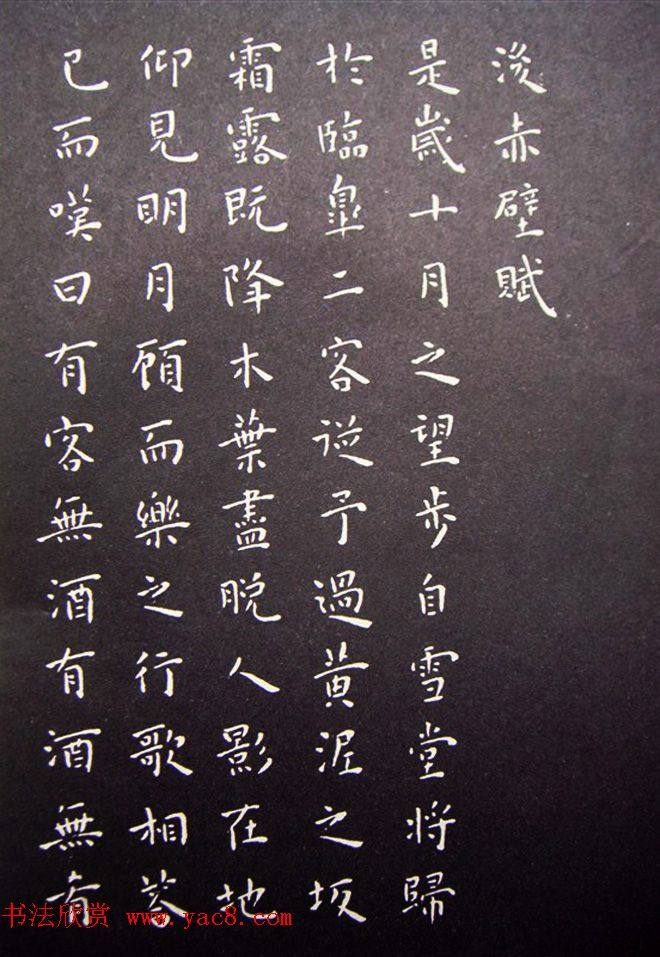 後赤壁賦
是歲十月之望步自雪堂將歸
於臨皐二客從予過黃泥之坂
霜露既降木葉盡脫人影在地
仰見明月顧而樂之行歌相荅
已而嘆曰有客無酒有酒無肴
书法欣赏 www.yac8.com